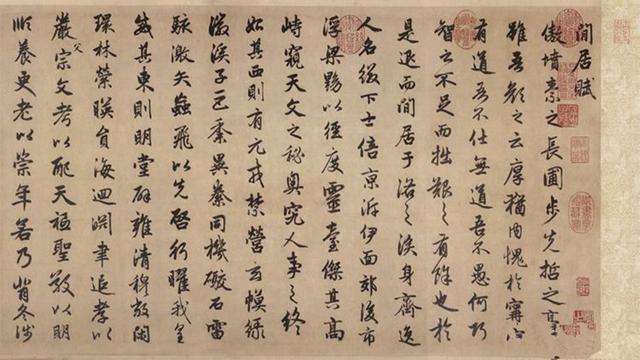 閒居賦
傲墳素之長圃步先哲之高
雖吾顏之云厚猶内愧於甯
有道吾不仕無道吾不愚何巧
智之不足而拙艱之有餘也於
是退而閒居于洛之涘身齊逸
人名綴下士倍京泝伊面郊後市
浮梁黝以徑度靈臺傑其高
峙窺天文之秘奧究人事之終
始其西則有元戎禁營玄幙綠
徽溪子巨黍異絭同機礮石雷
駭激矢蝱飛以先啓行曜我皇
威其東則明堂辟雍清穆敞閑
環林縈暎圓海迴淵聿追孝以
嚴父宗文考以配天秪聖敬以明
順養更老以崇年若乃背冬涉